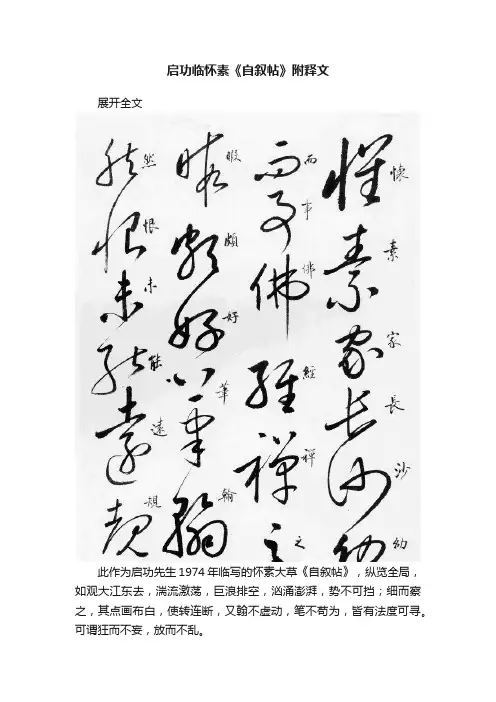 启功临怀素《自叙帖》附释文
展开全文
懷素家長沙幼
懷素家長沙幼
而事佛經禪之
而事佛經禪之
暇頗好筆翰
暇頗好筆翰
然恨未能遠覩
然恨未能遠覩
此作为启功先生1974年临写的怀素大草《自叙帖》，纵览全局，
如观大江东去，湍流激荡，巨浪排空，汹涌澎湃，势不可挡；细而察
之，其点画布白，使转连断，又翰不虚动，笔不苟为，皆有法度可寻。
可谓狂而不妄，放而不乱。